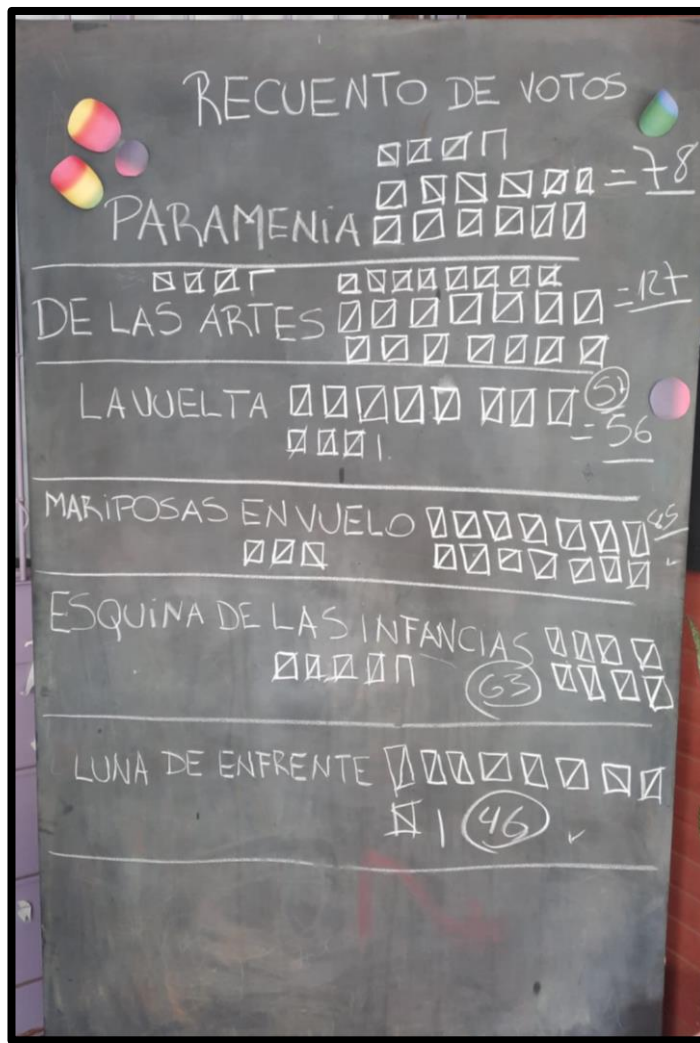 RECUENTO DE VOTOS
PARAMENIA = 78
DE LAS ARTES = 127
LA VUELTA
= 56
MARIPOSAS EN VUELO 85
ESQUINA DE LAS INFANCIAS
63
LUNA DE ENFRENTE
46